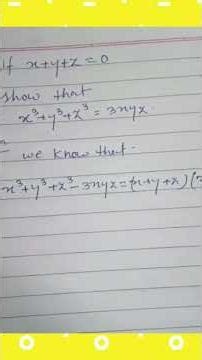 If x+y+z=0
show that
x³+y³+z³ = 3xyz.
we know that-
x³+y³+z³-3xyz=(x+y+z)(